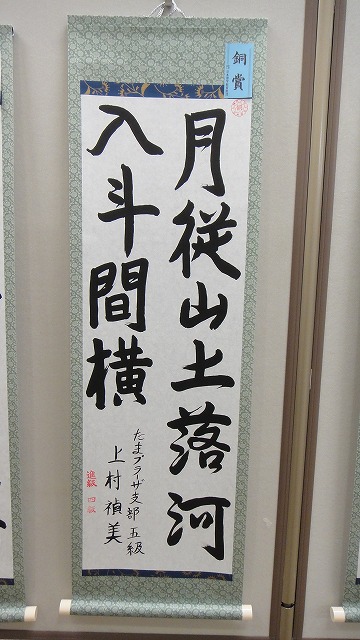 銅賞
月従山上落河
入斗間横
たまプラーザ支部 五級
上村禎美
進級 四級